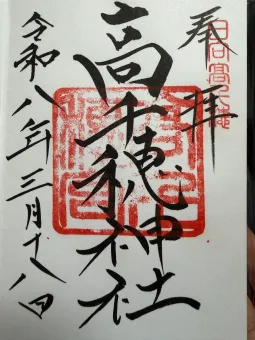 奉拝
日向高千穂
高千穂神社
令和八年三月十八日